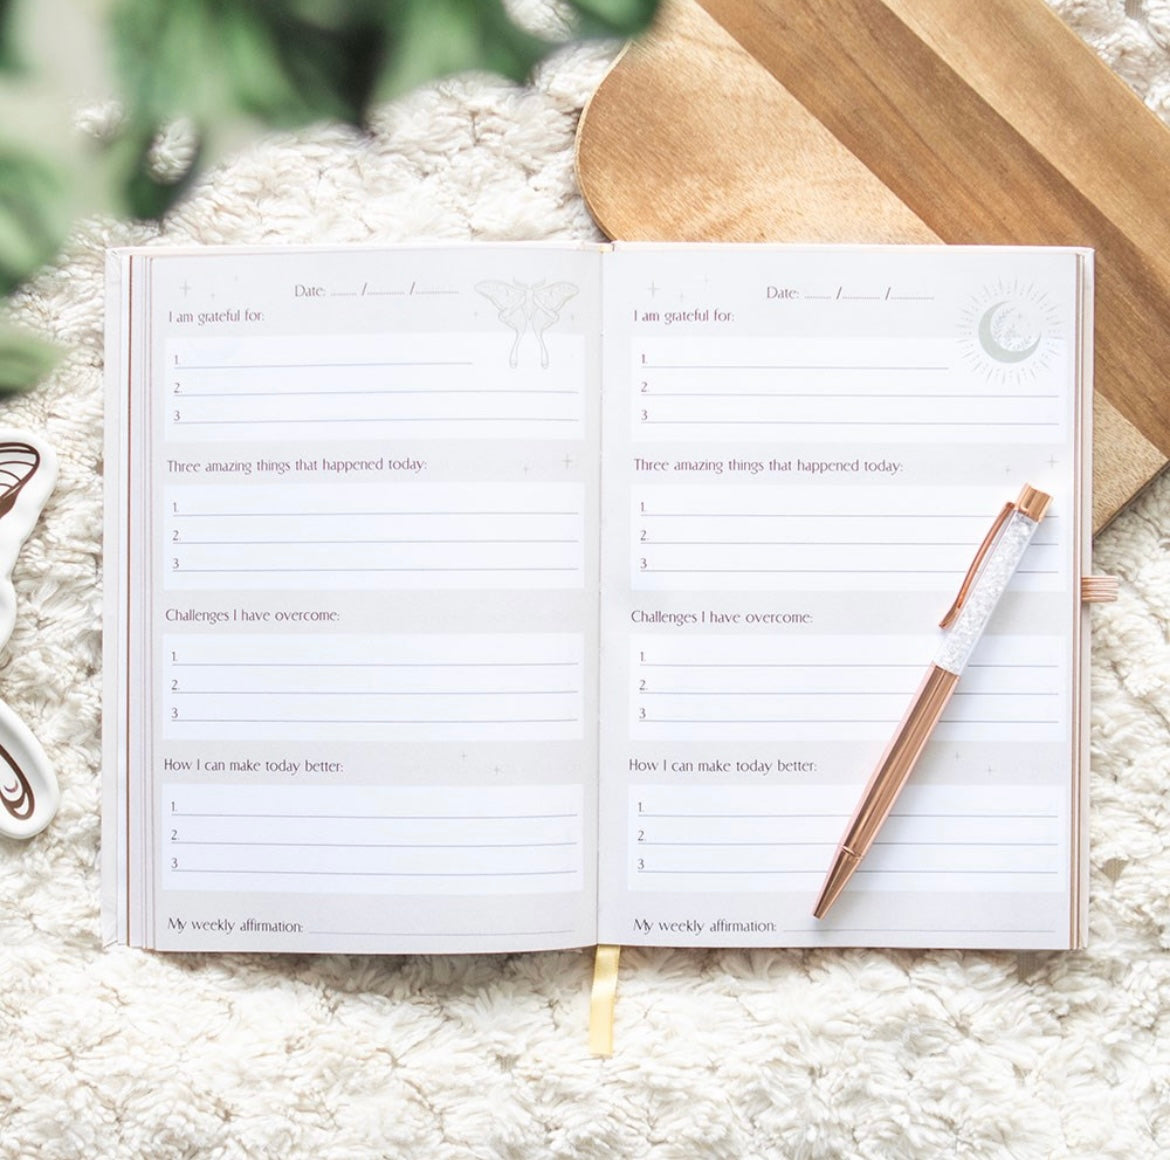 Date: ....... /........... /.............
I am grateful for:
1.
2.
3
Three amazing things that happened today:
1.
2.
3
Challenges I have overcome:
1.
2.
3
How I can make today better:
1.
2.
3
My weekly affirmation:
Date: ....... /........... /.............
I am grateful for:
1.
2.
3
Three amazing things that happened today:
1.
2.
3
Challenges I have overcome:
1.
2.
3
How I can make today better:
1.
2.
3
My weekly affirmation: